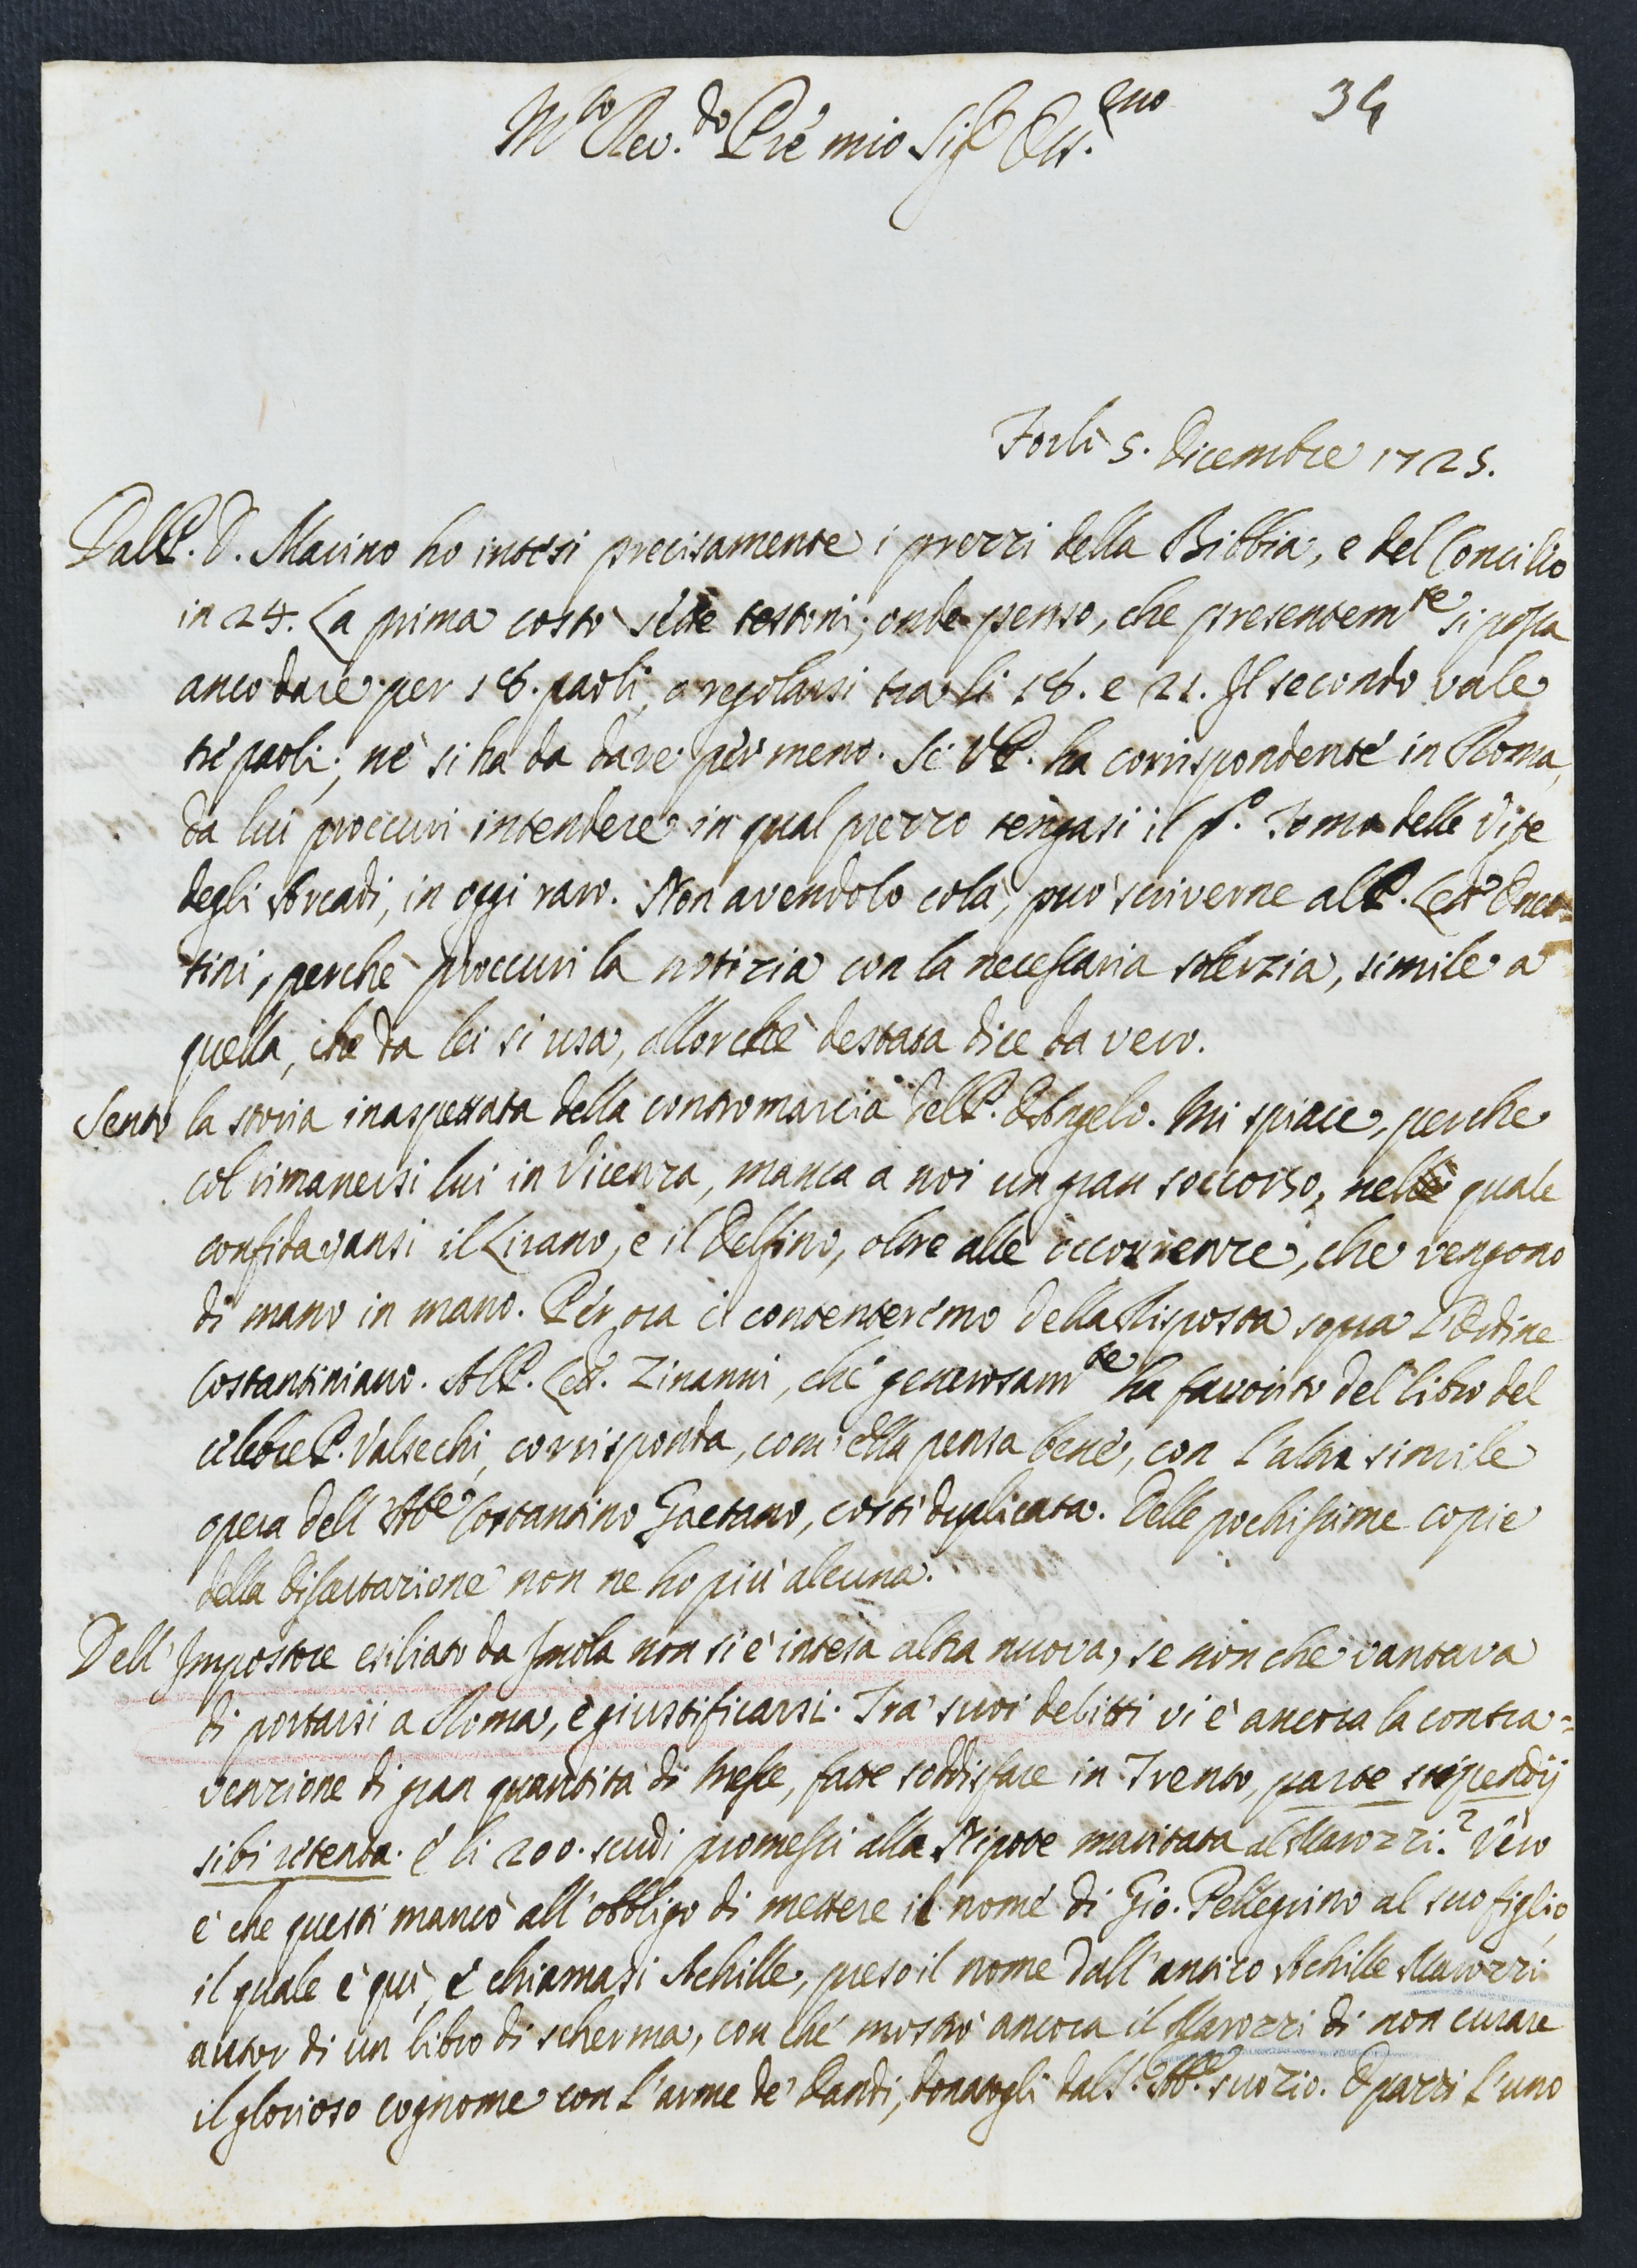 34
M.to Rev.do Pre mio Sig.r Oss.mo
Forlì 5. Dicembre 1725.
Dal P. D. Macino ho intesi precisamente i prezzi della Bibbia, e del Concilio
in 24. La prima costò sette testoni; onde penso, che presentem.te si possa
anco dare per 18. paoli, o regolarsi tra li 18. e 21. Il secondo vale
trè paoli; nè si ha da dare per meno. Se V. P. ha corrispondente in Roma,
da lui proccuri intendere in qual prezzo tengasi il p.o Tomo delle Vite
degli Arcadi, in oggi raro. Non avendolo colà, può scriverne al P. Lett.
tini, perchè proccuri la notizia con la necessaria solerzia, simile a
quella, che da lei si usa, allorchè destata dice da vero.
Sento la storia inaspettata della contromarcia del P. D'Angelo. Mi spiace, perche
col rimanersi lui in Vicenza, manca a noi un gran soccorso, nel quale
confidavansi il Lirano, e il Delfino, oltre alle occorrenze, che vengono
di mano in mano. Per ora ci contenteremo della Risposta sopra l'Ordine
Costantiniano. Al P. Lett. Zinanni, che generosam.te ha favorito del libro del
celebre P. Valsechi, corrisponda, com'ella pensa bene, con l'altra simile
opera dell'Ab.e Costantino Gaetano, costì duplicata. Delle pochissime copie
della dissertazione non ne ho più alcuna.
Dell'Impostore esiliato da Imola non si è intesa altra nuova, se non che vantava
di portarsi a Roma, e giustificarsi. Tra' suoi delitti vi è ancora la contra=
venzione di gran quantità di Messe, fatte soddisfare in Trento, parte stipendij
sibi retenta. E li 200. scudi promessi alla Nipote maritata al Marozzi? Vero
è che questi mancò all'obbligo di mettere il nome di Gio. Pellegrino al suo figlio,
il quale è quì, e chiamasi Achille, preso il nome dall'antico Achille Marozzi
autor di un libro di scherma, con che mostrò ancora il Marozzi di non curare
il glorioso cognome con l'arme de' Dandi, donatogli dal S. Ab.e suo zio. E pazzi l'uno